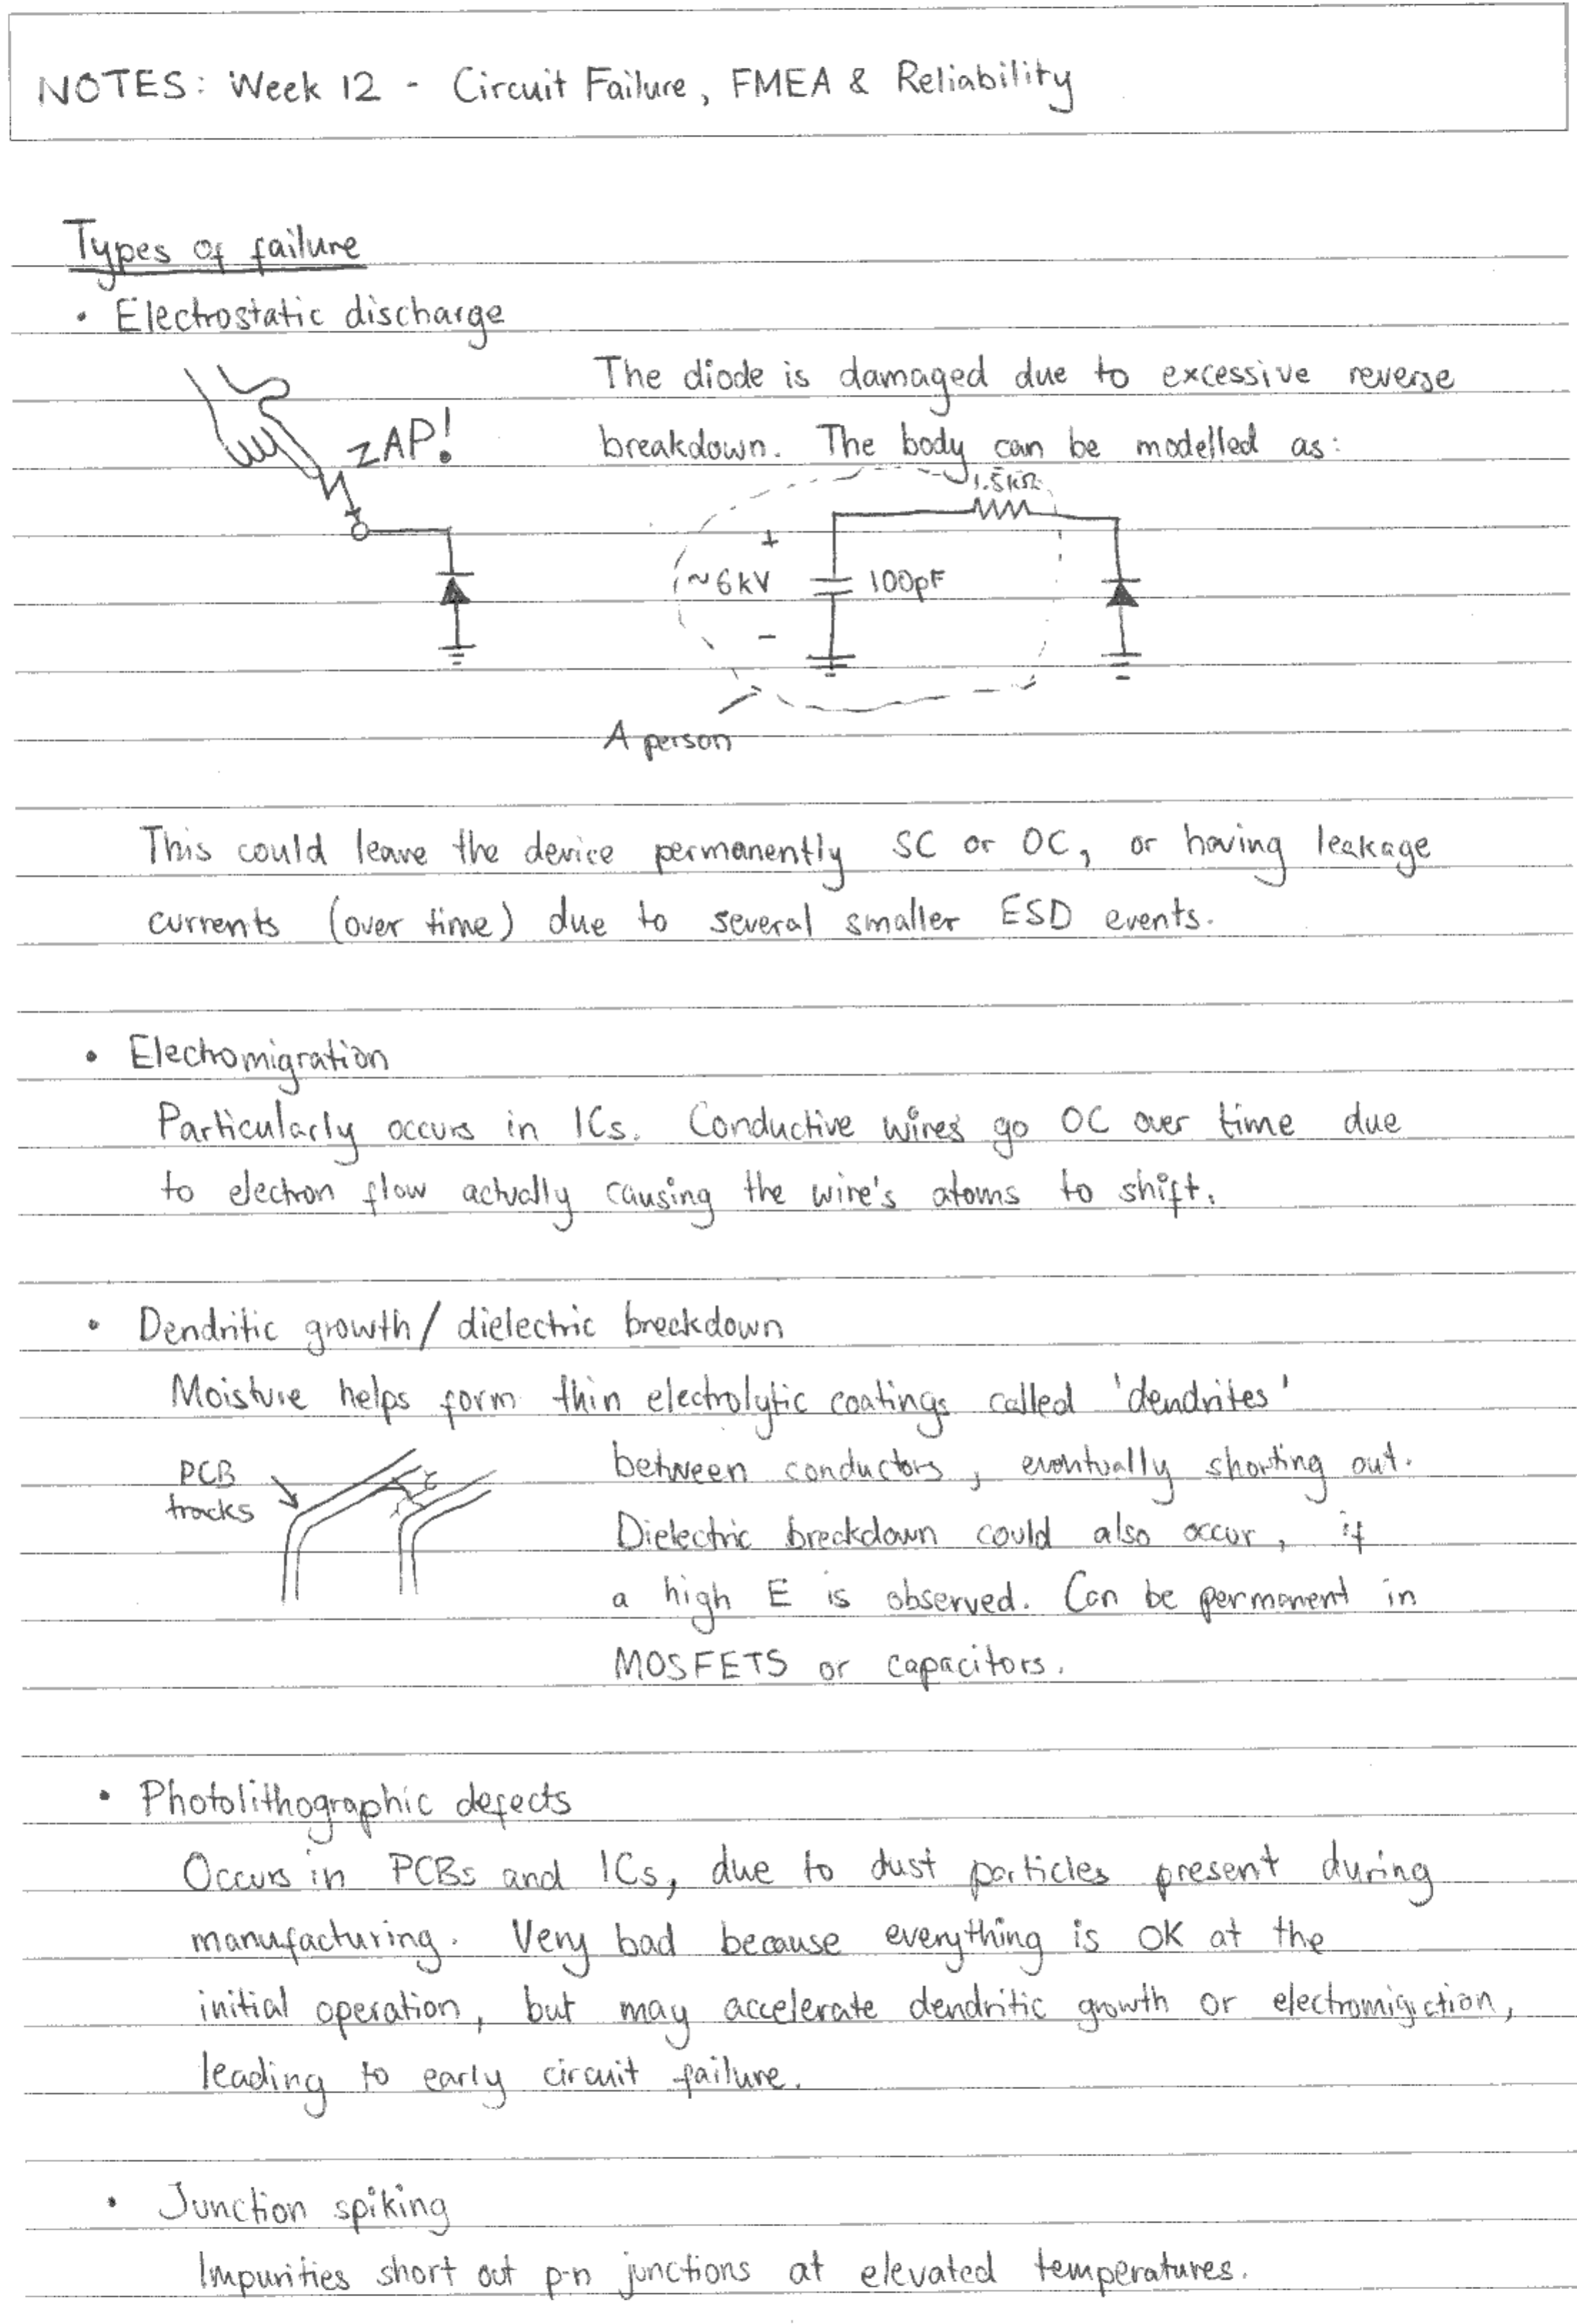 NOTES: Week 12 - Circuit Failure, FMEA & Reliability
Types of failure
• Electrostatic discharge
zAP!
The diode is damaged due to excessive reverse
breakdown. The body can be modelled as:
1.5kΩ
+
~6kV
100pF
-
A person
This could leave the device permanently SC or OC, or having leakage
currents (over time) due to several smaller ESD events.
• Electromigration
Particularly occurs in ICs. Conductive wires go OC over time due
to electron flow actually causing the wire's atoms to shift.
• Dendritic growth / dielectric breakdown
Moisture helps form thin electrolytic coatings called 'dendrites'
between conductors, eventually shorting out.
PCB
tracks
Dielectric breakdown could also occur, if
a high E is observed. Can be permanent in
MOSFETS or capacitors.
• Photolithographic defects
Occurs in PCBs and ICs, due to dust particles present during
manufacturing. Very bad because everything is OK at the
initial operation, but may accelerate dendritic growth or electromigration,
leading to early circuit failure.
• Junction spiking
Impurities short out p-n junctions at elevated temperatures.